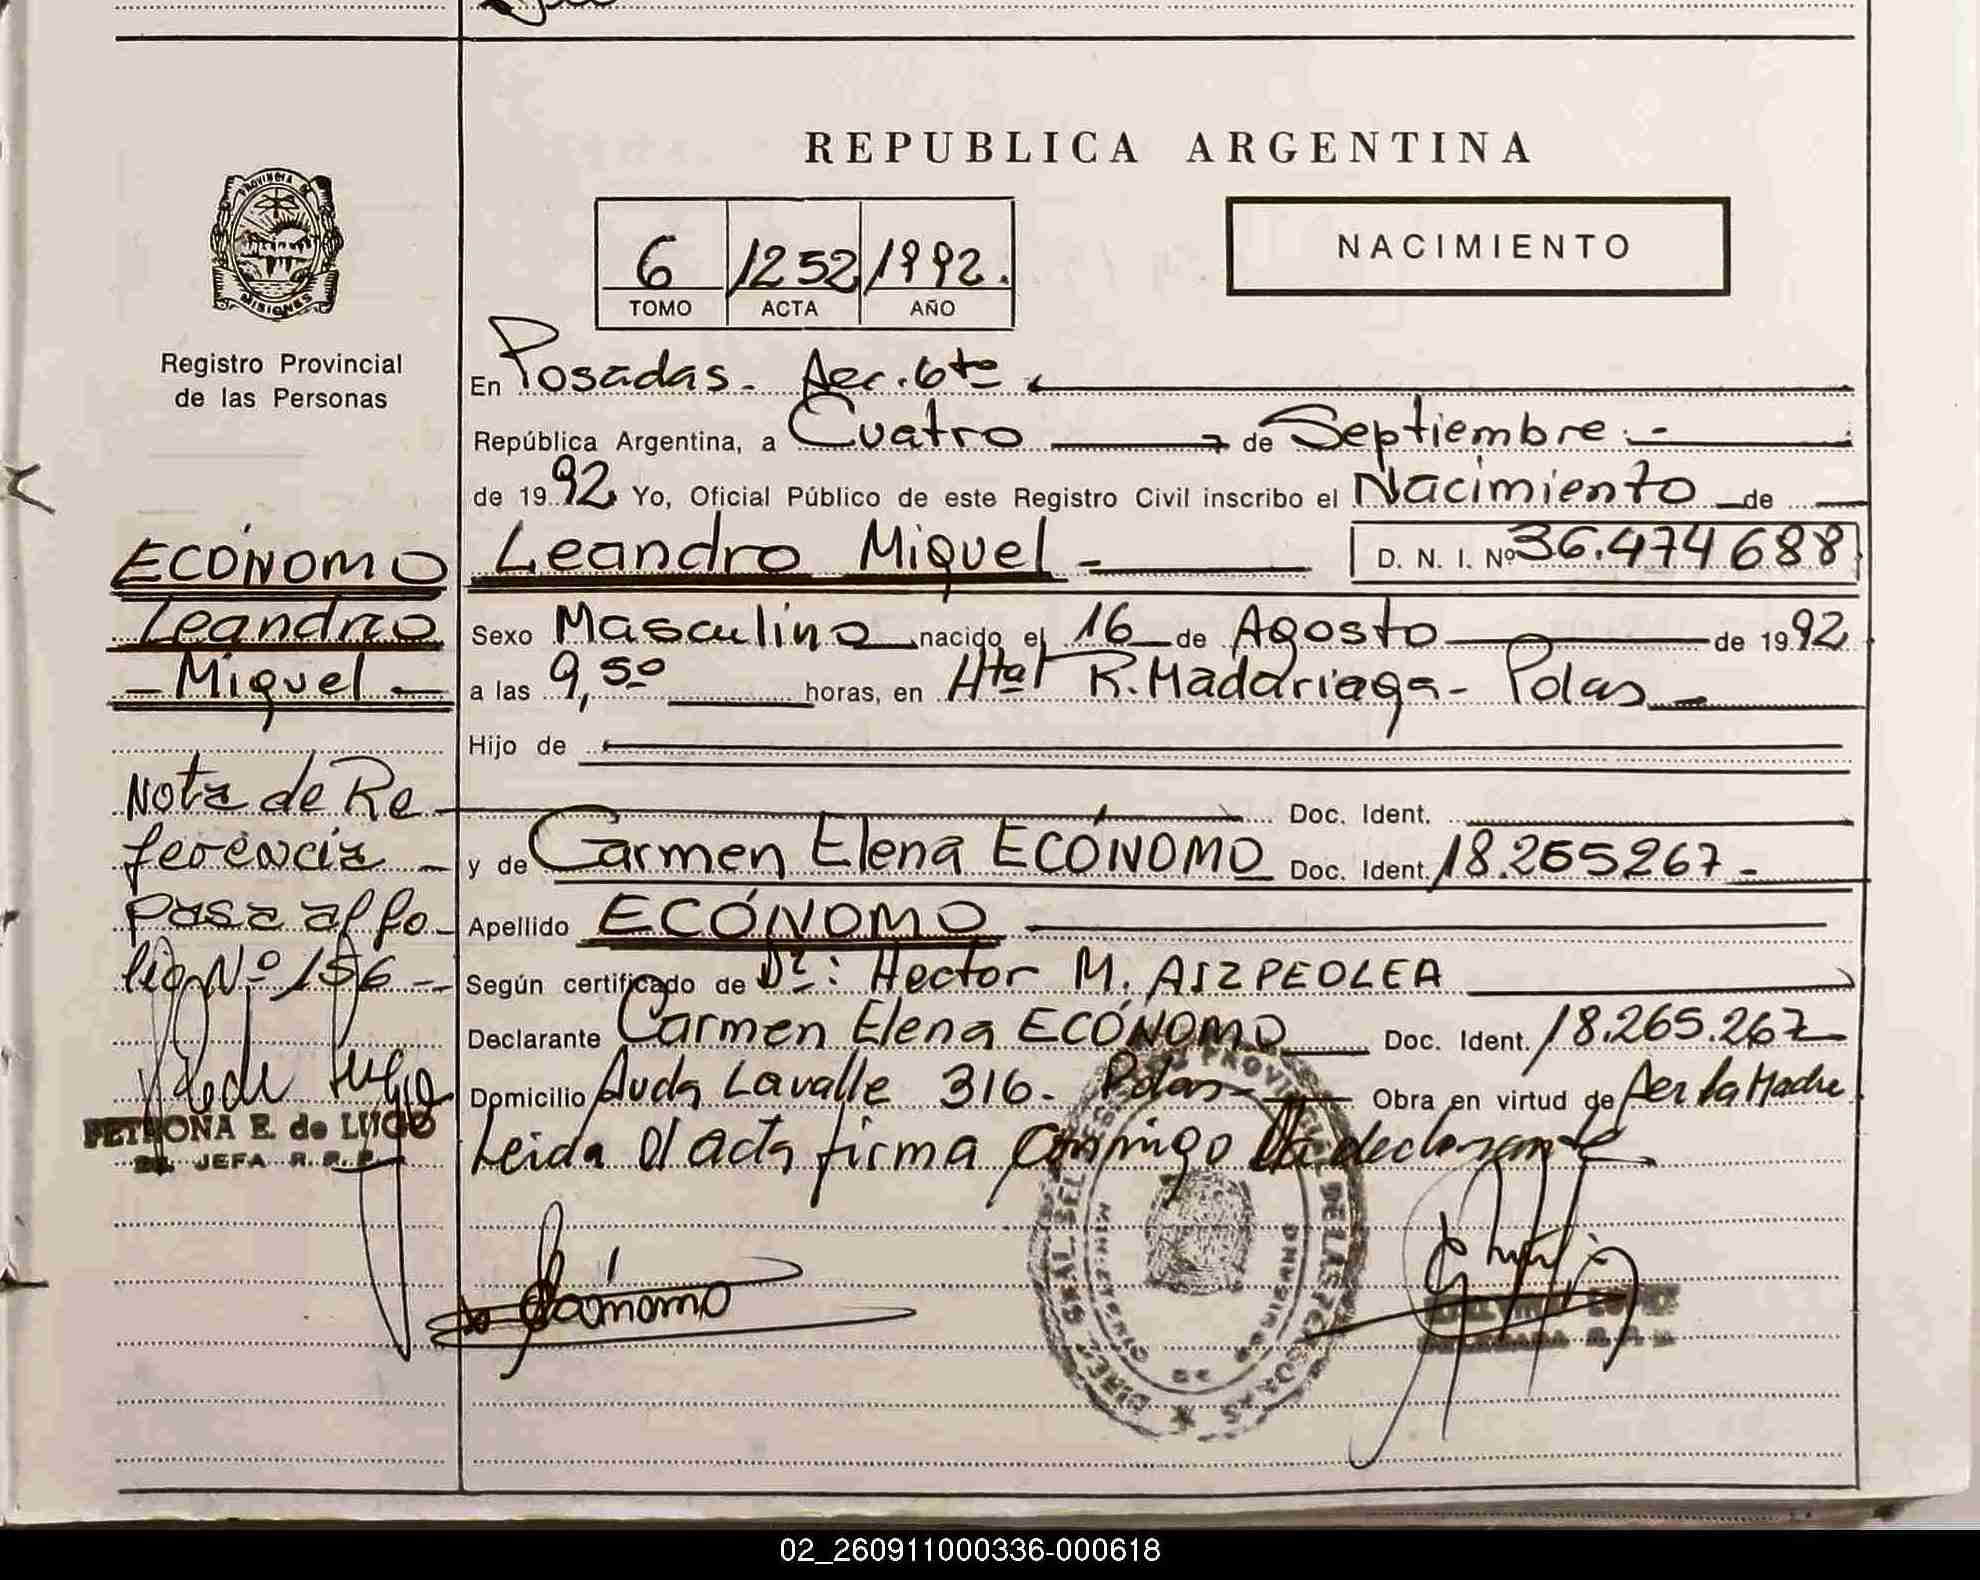 REPUBLICA ARGENTINA
PROVINCIA DE
MISIONES
Registro Provincial
de las Personas
6 1252 1992.
TOMO ACTA AÑO
NACIMIENTO
En Posadas. Aer. 6ta
República Argentina, a Cuatro de Septiembre.-
de 1992 Yo, Oficial Público de este Registro Civil inscribo el Nacimiento de
ECÓNOMO
Leandro
- Miguel -
Leandro Miguel - D. N. I. Nº 36.474688
Sexo Masculino nacido el 16 de Agosto de 1992
a las 9,50 horas, en Htal R. Madariaga - Pdas
Hijo de
Doc. Ident.
y de Carmen Elena ECÓNOMO Doc. Ident. 18.265267-
Apellido ECÓNOMO
Según certificado de Dr.: Hector M. AIZPEOLEA
Declarante Carmen Elena ECÓNOMO Doc. Ident. 18.265.267
Domicilio Avda Lavalle 316. Pdas Obra en virtud de ser la Madre
Leida el acta firma conmigo la declarante
Nota de Re
ferencia -
Pasa al fo-
lio Nº 156 -
PETRONA E. de LUGO
JEFA R.P.P.
Ecónomo
02_260911000336-000618